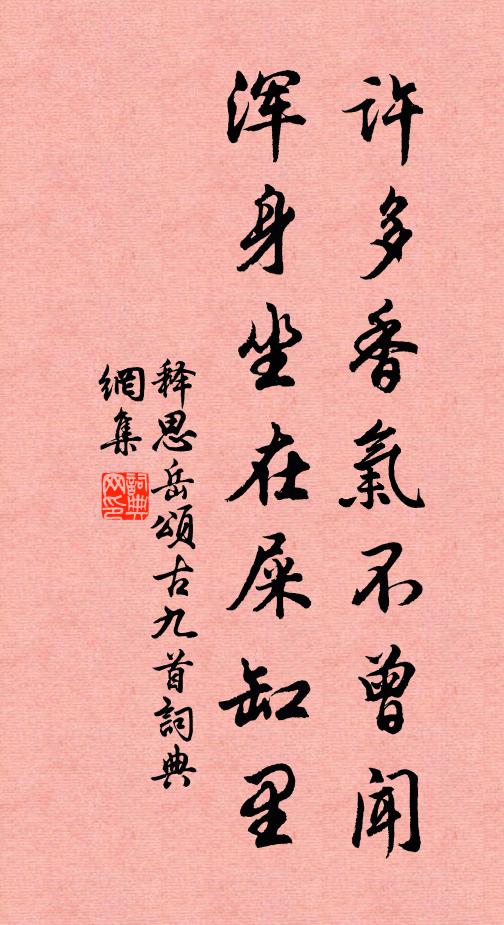 许多香氣不曾闻
浑身坐在屎缸里
释思岳頌古九首詞典
網集
詞典网印